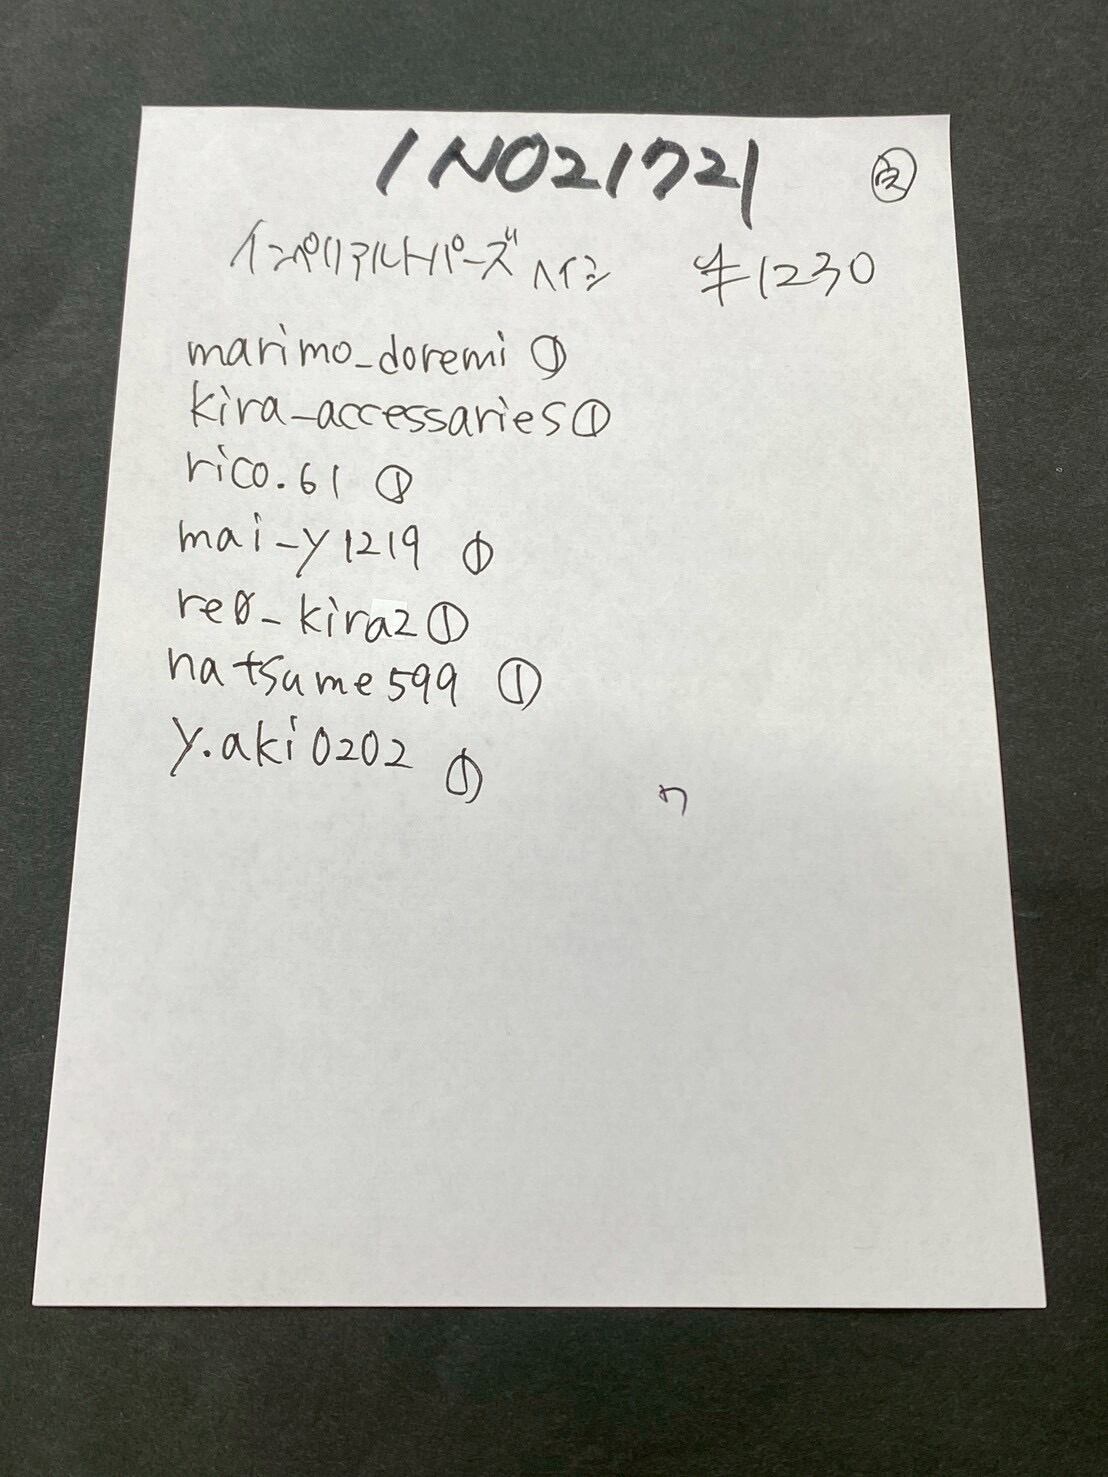 1NO21721
インペリアルトパーズ ヘイシ ¥1230
marimo_doremi ①
kira_accessaries ①
rico.61 ①
mai_y1219 ①
re0_kira2 ①
natsume599 ①
y.aki0202 ①
7